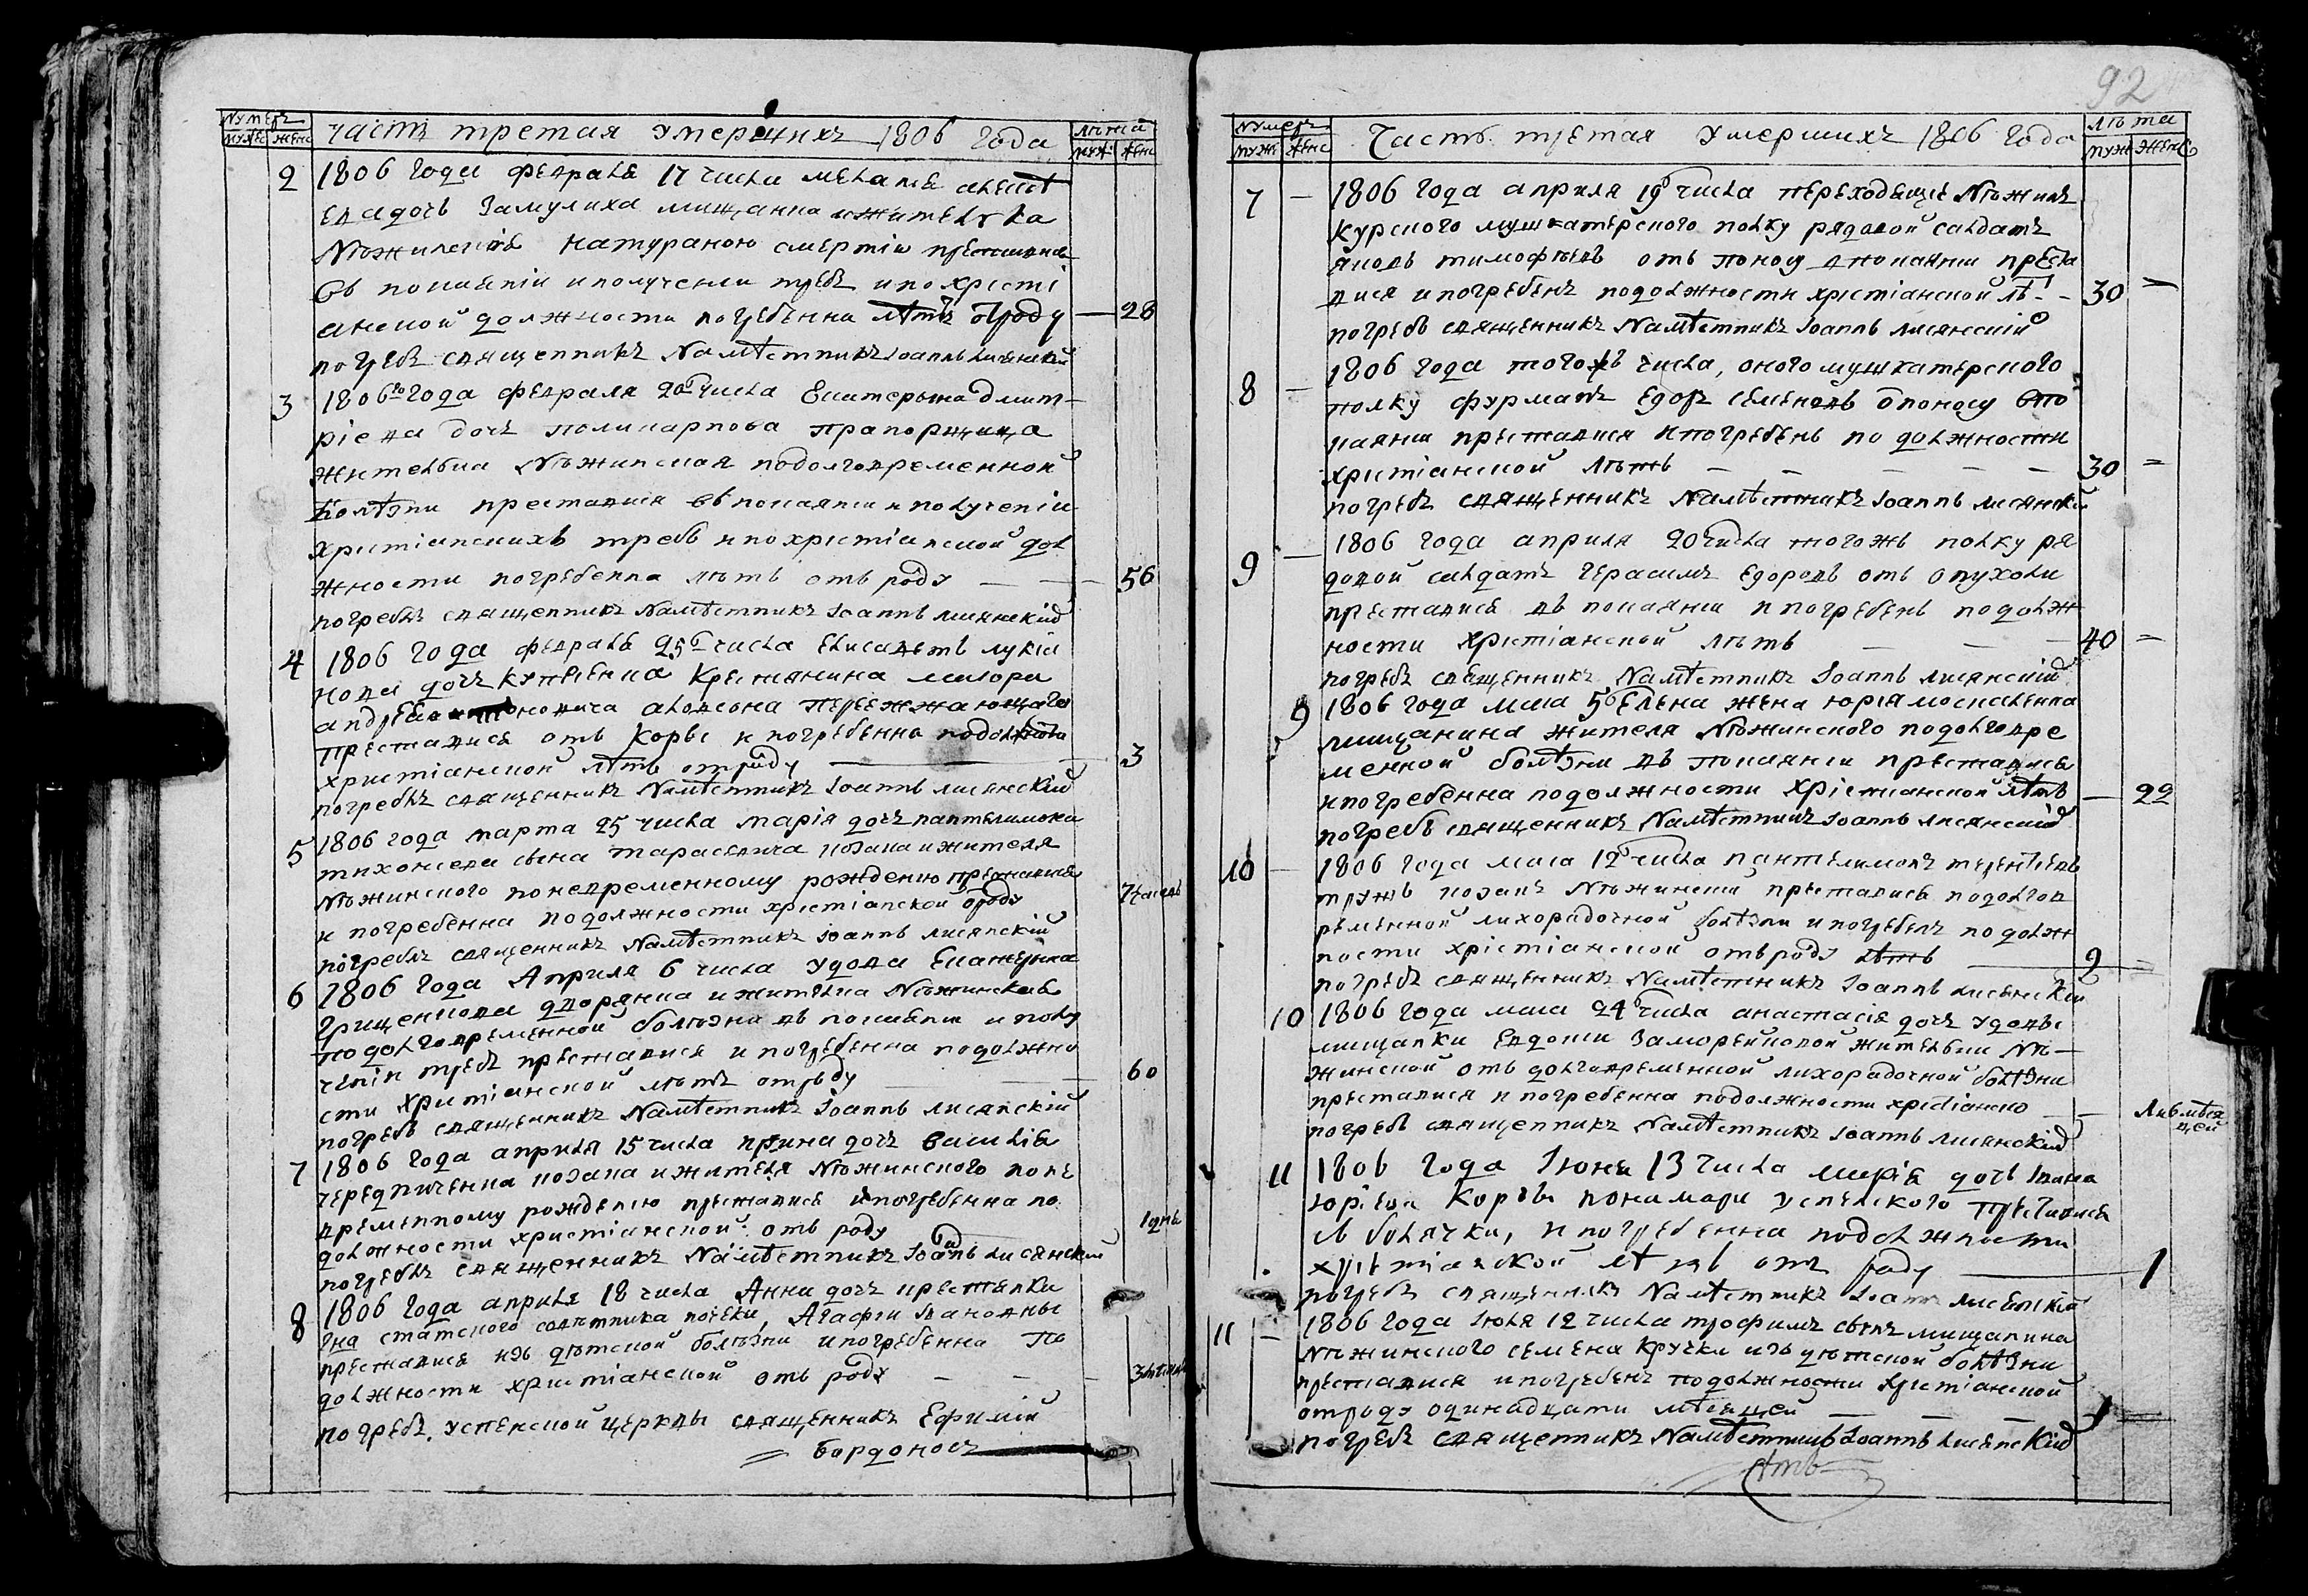 92
Нумеръ
муже женс
часть третая умершихъ 1806 года
лѣта
муж женс
2 1806 года февраля 17 числа
евадочь Замулиха мищанка жителька
Нѣжинская натуралною смертію преставися
въ покаянии и получении требъ и по христі
анской должности погребенна лѣтъ отроду — 28
погребъ священникъ Намѣстникъ Іоаннъ Лисянскій
3 1806го года февраля 20 числа Екатерына дмит-
ріева дочь поликарпова прапорщица
жителька Нѣжинская подолговременной
болѣзни преставися въ покаянии и полученіи
христіанскихъ требъ и по христіанской дол
жности погребенна лѣтъ отъ роду — — 56
погребъ священникъ Намѣстникъ Іоаннъ Лисянскій
4 1806 года февраля 25 числа Елисаветъ лукія
нова дочь Крестянина маіора
андрея переежжающаго
преставися отъ Корю и погребенна подолжности
христіанской лѣтъ отроду — 3
погребъ священникъ Намѣстникъ Іоаннъ Лисянскій
5 1806 года марта 25 числа марія дочь пантелимона
тихонсева сына тарасевича козака и жителя
Нѣжинского по невременному рождению преставися
и погребенна по должности христіанской отроду 7 часовъ
погребъ священникъ Намѣстникъ Іоаннъ Лисянскій
6 1806 года Априля 6 числа удова Екатерына
Грищенкова дворянка и жителка Нѣжинская
по долговременной болѣзни въ покаянии и полу
ченіи требъ преставися и погребенна подолжно
сти христианской лѣтъ отроду — — 60
погребъ священникъ Намѣстникъ Іоаннъ Лисянскій
7 1806 года априля 15 числа ирина дочь василія
чередниченка козака и жителя Нѣжинского по не
временному рождению преставися и погребенна по
должности христианской отъ роду 1 день
погребъ священникъ Намѣстникъ Іоаннъ Лисянскій
8 1806 года априля 18 числа Анна дочь крестянки
статского совѣтника Агафіи Івановны
преставися изъ дѣтской болѣзни и погребенна по
должности христианской отъ роду — — — 3
погребъ успенской церквы священникъ Ефимій
Бардоносъ
Нумеръ
мужс женс
Часть третая Умершихъ 1806 года
лѣта
муж женс
7 — 1806 года априля 19 числа переходящіе Нѣжинъ
Курского мушкатерского полку рядовой салдатъ
яковъ тимофѣевъ отъ поносу в покаянии преста
вися и погребенъ подолжности христіанской лѣ. — 30 —
погребъ священникъ Намѣстникъ Іоаннъ Лисянскій
8 — 1806 года тогожъ числа, оного мушкатерского
полку фурманъ Едоръ семеновъ от поносу въ по
каянии преставися и погребенъ по должности
христіанской лѣтъ — — — — — 30 —
погребъ священникъ Намѣстникъ Іоаннъ Лисянскій
9 — 1806 года априля 20 числа тогожъ полку ря
довой салдатъ Герасимъ Едоровъ отъ опухоли
преставися въ покаянии и погребенъ подолж
ности христіанской лѣтъ — — — 40 —
погребъ священникъ Намѣстникъ Іоаннъ Лисянскій
9 1806 года маіа 5 Елена жена юрія москаленка
мищанина жителя Нѣжинского подолговре
менной болѣзни въ покаянии преставися
и погребенна подолжности христианской лѣтъ — 22
погребъ священникъ Намѣстникъ Іоаннъ Лисянскій
10 — 1806 года маіа 12 числа пантелимонъ терентіевъ
трушъ козакъ Нѣжинский преставися подолгов
ременной лихорадочной болѣзни и погребенъ подолж
ности христіанской отъ роду лѣтъ — 2 —
погребъ священникъ Намѣстникъ Іоаннъ Лисянскій
10 1806 года маіа 24 числа анастасія дочь удовы
мищанки Евдокии Заморейковой жителки Нѣ—
жинской отъ долговременной лихорадочной болѣзни
преставися и погребенна подолжности христіанско — —
погребъ священникъ Намѣстникъ Іоаннъ Лисянскій
11 1806 года Іюня 13 числа марія дочь Івана
юріева Коровы пономаря успенского преставися
съ болячки, и погребенна подолжности
христіанской лѣтъ отъ роду — 1
погребъ священникъ Намѣстникъ Іоаннъ Лисянскій
11 — 1806 года Іюля 12 числа трофимъ сынъ мищанина
Нѣжинского семена Кручки изъ дѣтской болѣзни
преставися и погребенъ подолжности христіанской
отроду одинадцати мѣсяцей — — — 1 —
погребъ священникъ Намѣстникъ Іоаннъ Лисянскій